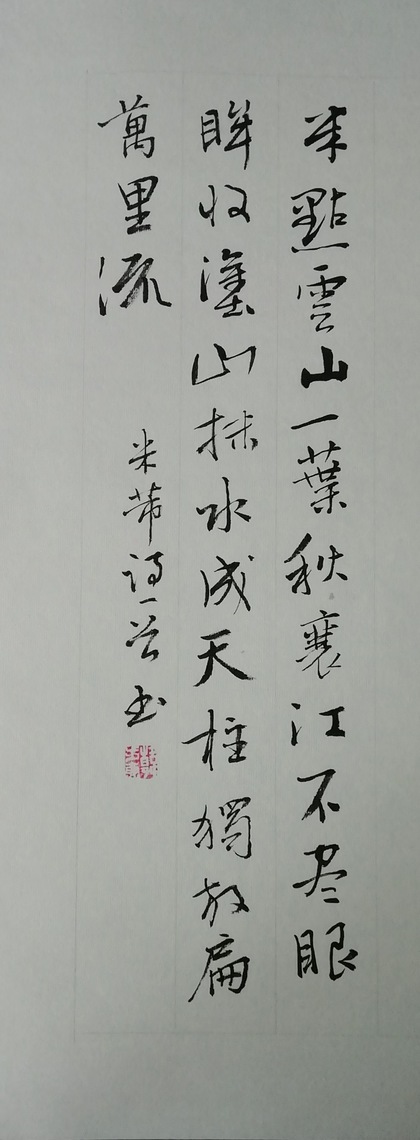 米點雲山一葉秋襄江不尽眼
眸收塗山抹水成天柱獨放扁
萬里流
米芾詩一首书